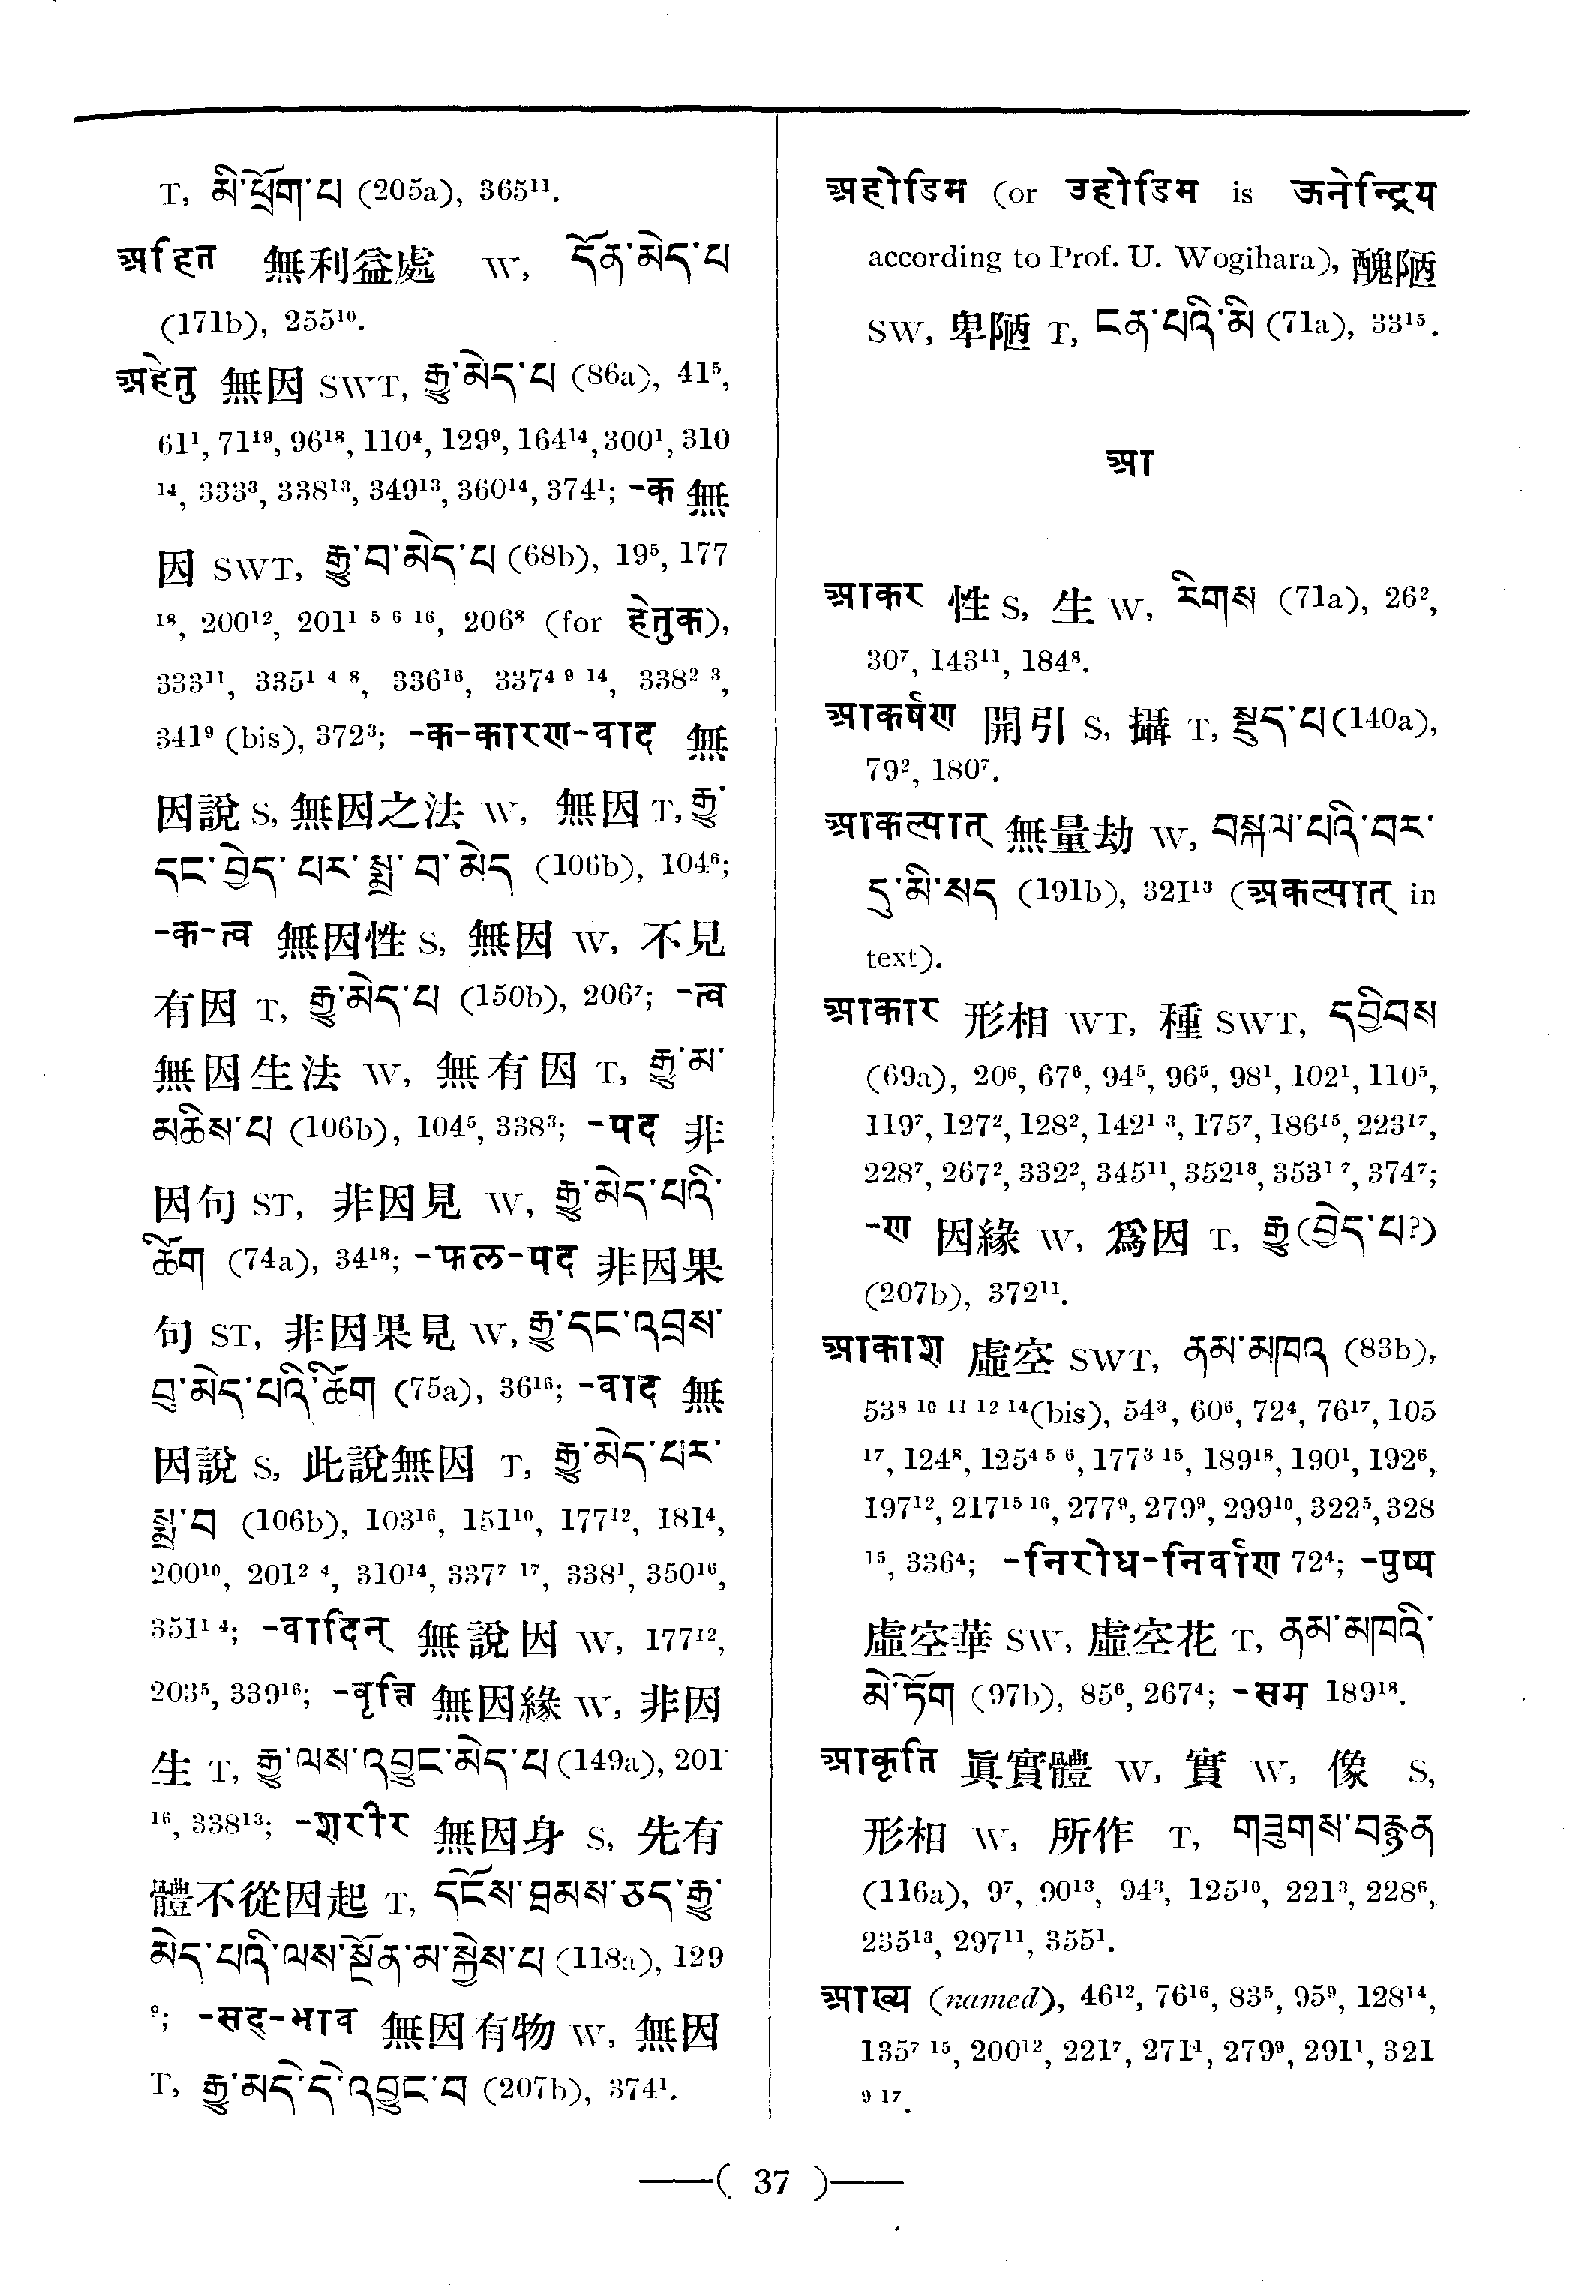 T, མི་ཕྲོག་པ (205a), 365¹¹.
अहित 無利益處 W, དོན་མེད་པ
(171b), 255¹⁰.
अहेतु 無因 SWT, རྒྱུ་མེད་པ (86a), 41⁵,
61¹, 71¹⁹, 96¹⁸, 110⁴, 129⁹, 164¹⁴, 300¹, 310
¹⁴, 333³, 338¹³, 349¹³, 360¹⁴, 374¹; -क 無
因 SWT, རྒྱུ་བ་མེད་པ (68b), 19⁵, 177
¹⁸, 200¹², 201¹ ⁵ ⁶ ¹⁶, 206⁸ (for हेतुक),
333¹¹, 335¹ ⁴ ⁸, 336¹⁶, 337⁴ ⁹ ¹⁴, 338² ³,
341⁹ (bis), 372³; -क-कारण-वाद 無
因說 S, 無因之法 W, 無因 T, རྒྱུ་
དང་བྱེད་ པར་ སྨྲ་ བ་ མེད (106b), 104⁶;
-क-त्व 無因性 S, 無因 W, 不見
有因 T, རྒྱུ་མེད་པ (150b), 206⁷; -त्व
無因生法 W, 無有因 T, རྒྱུ་མ་
མཆིས་པ (106b), 104⁵, 338³; -पद 非
因句 ST, 非因見 W, རྒྱུ་མེད་པའི་
ཚོག (74a), 34¹⁸; -फल-पद 非因果
句 ST, 非因果見 W, རྒྱུ་དང་འབྲས་
བུ་མེད་པའི་ཚོག (75a), 36¹⁶; -वाद 無
因說 S, 此說無因 T, རྒྱུ་མེད་པར་
སྨྲ་བ (106b), 103¹⁶, 151¹⁰, 177¹², 181⁴,
200¹⁰, 201² ⁴, 310¹⁴, 337⁷ ¹⁷, 338¹, 350¹⁶,
351¹ ⁴; -वादिन् 無說因 W, 177¹²,
203⁵, 339¹⁶; -वृत्ति 無因緣 W, 非因
生 T, རྒྱུ་ལས་འབྱུང་མེད་པ (149a), 201
¹⁶, 338¹³; -शरीर 無因身 S, 先有
體不從因起 T, དངོས་ཐམས་ཅད་རྒྱུ་
མེད་པའི་ལས་སྔོན་མ་སྐྱེས་པ (118a), 129
⁹; -सद्-भाव 無因有物 W, 無因
T, རྒྱུ་མདེ་དེ་འབྱུང་བ (207b), 374¹.
अहोडिम (or उहोडिम is ऊनेन्द्रिय
according to Prof. U. Wogihara), 醜陋
SW, 卑陋 T, ངན་པའི་མི (71a), 33¹⁵.
आ
आकर 性 S, 生 W, རིགས (71a), 26²,
30⁷, 143¹¹, 184⁸.
आकर्षण 開引 S, 攝 T, སྡུད་པ (140a),
79², 180⁷.
आकल्पात् 無量劫 W, བསྐལ་པའི་བར་
དུ་མི་སད (191b), 321¹³ (अकल्पात् in
text).
आकार 形相 WT, 種 SWT, དབྱིབས
(69a), 20⁶, 67⁶, 94⁵, 96⁵, 98¹, 102¹, 110⁵,
119⁷, 127², 128², 142¹ ³, 175⁷, 186¹⁵, 223¹⁷,
228⁷, 267², 332², 345¹¹, 352¹⁸, 353¹ ⁷, 374⁷;
-ण 因緣 W, 爲因 T, རྒྱུ (བྱེད་པ?)
(207b), 372¹¹.
आकाश 虛空 SWT, ནམ་མཁའ (83b),
53⁸ ¹⁰ ¹¹ ¹² ¹⁴ (bis), 54³, 60⁶, 72⁴, 76¹⁷, 105
¹⁷, 124⁸, 125⁴ ⁵ ⁶, 177³ ¹⁵, 189¹⁸, 190¹, 192⁶,
197¹², 217¹⁵ ¹⁶, 277⁹, 279⁹, 299¹⁰, 322⁵, 328
¹⁵, 336⁴; -निरोध-निर्वाण 72⁴; -पुष्प
虛空華 SW, 虛空花 T, ནམ་མཁའི་
མེ་ཏོག (97b), 85⁶, 267⁴; -सम 189¹⁸.
आकृति 眞實體 W, 實 W, 像 S,
形相 W, 所作 T, གཟུགས་བརྙན
(116a), 9⁷, 90¹³, 94³, 125¹⁰, 221³, 228⁶,
235¹³, 297¹¹, 355¹.
आख्य (named), 46¹², 76¹⁶, 83⁵, 95⁹, 128¹⁴,
135⁷ ¹⁵, 200¹², 221⁷, 271⁴, 279⁹, 291¹, 321
⁹ ¹⁷.
—( 37 )—